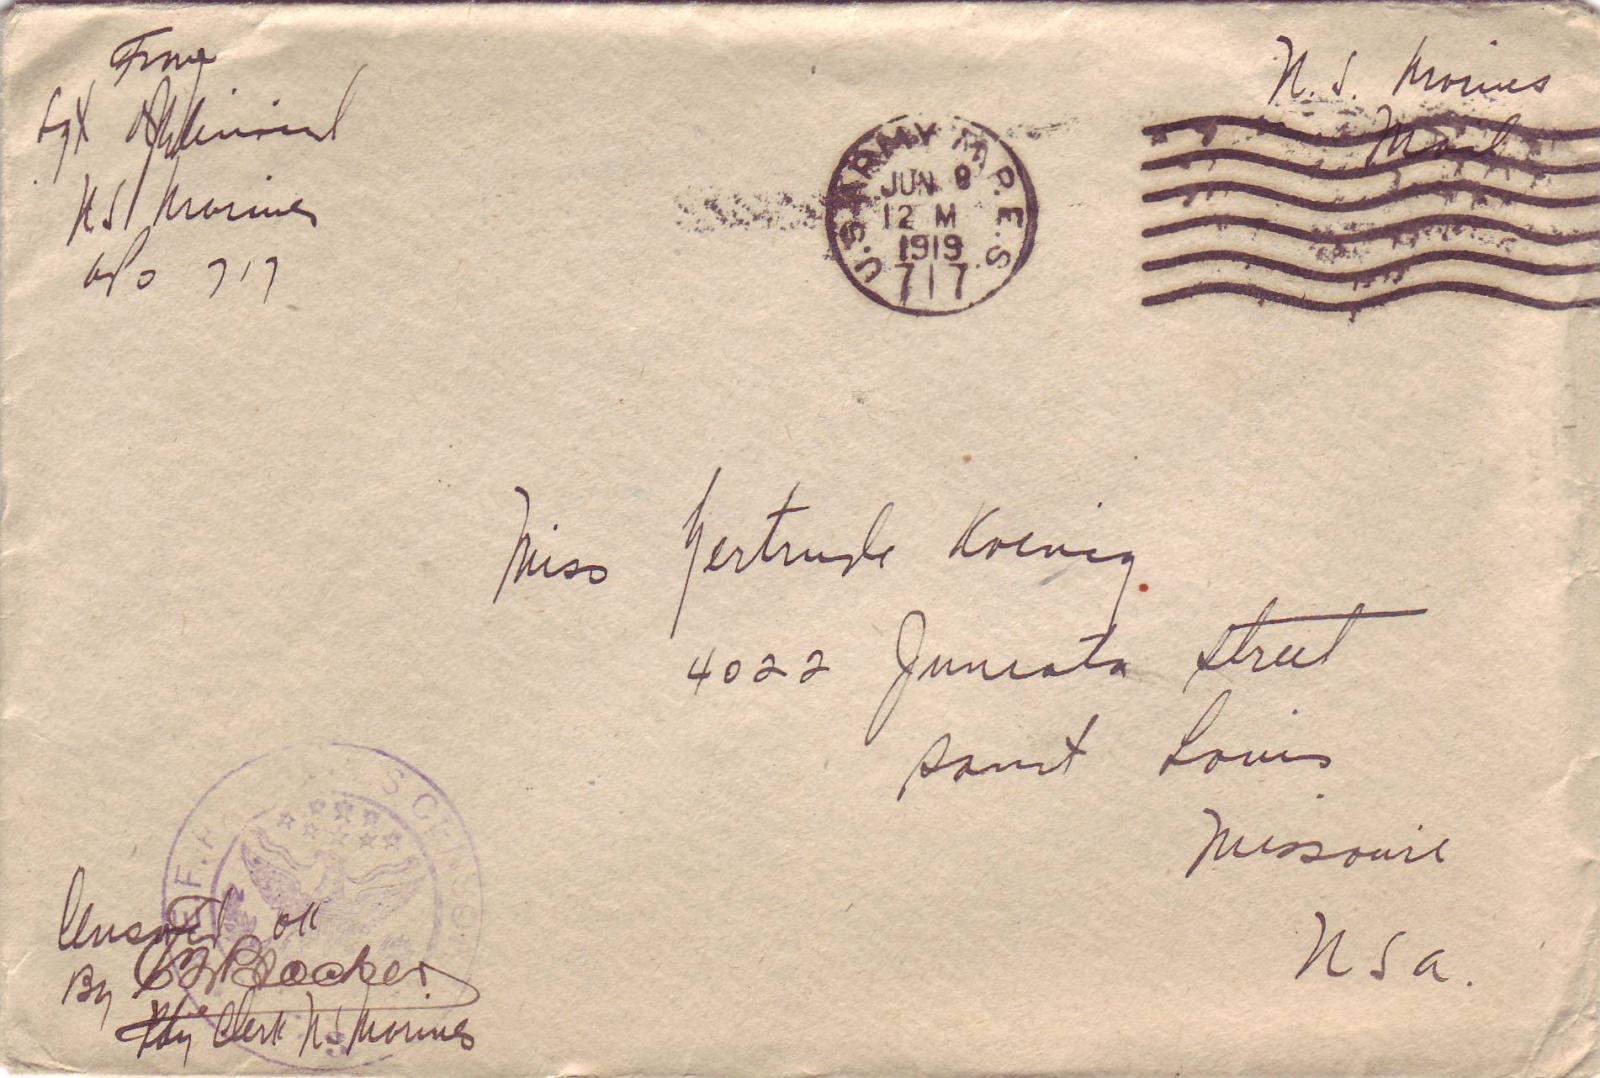 From
Sgt
US Marines
APO 717
U.S. Marines
Mail
U.S. ARMY M.P.E.S.
JUN 8
12 M
1919
717
Miss Gertrude Koenig
4022 Juniata Street
Saint Louis
Missouri
USA.
Censored OK
By
Clerk US Marines
CENSOR